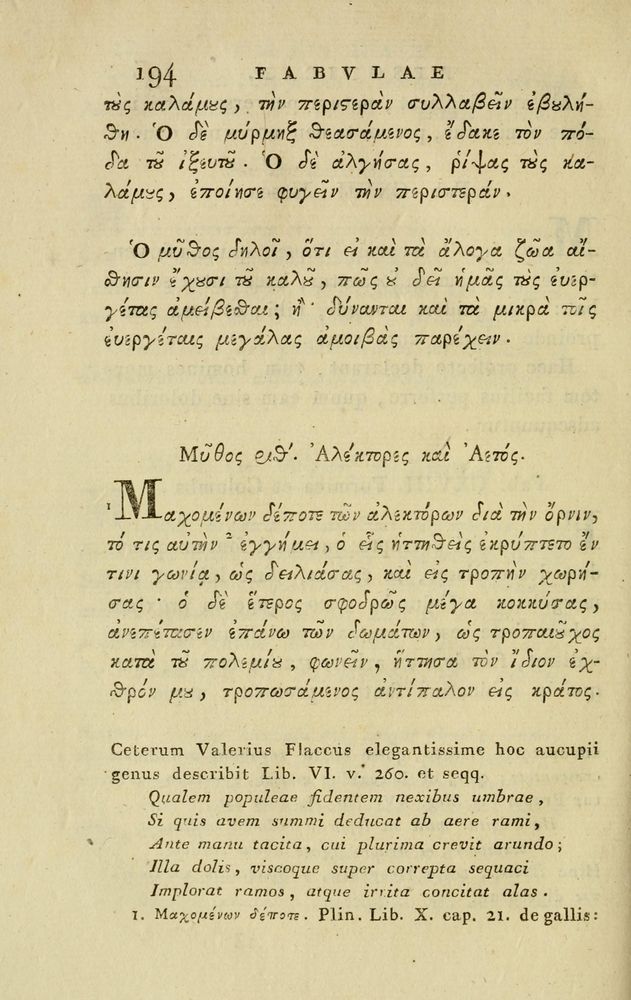 194 FABVLAE
τȣ̀ς καλάμȣς, τὴν περιϛερὰν συλλαβεῖν ἐβȣλή-
θη. Ὁ δὲ μύρμηξ θεασάμενος, ἔδακε τὸν πό-
δα τȣ͂ ἰξευτȣ͂. Ὁ δὲ ἀλγήσας, ῥίψας τȣ̀ς κα-
λάμȣς, ἐποίησε φυγεῖν τὴν περιστεράν.
Ὁ μῦθος δηλοῖ, ὅτι εἰ καὶ τὰ ἄλογα ζῶα αἴ-
θησιν ἔχȣσι τȣ͂ καλȣ͂, πῶς ȣ̓ δεῖ ἡμᾶς τȣ̀ς ἐυερ-
γέτας ἀμείβεθαι; ἢ δύνανται καὶ τὰ μικρὰ τοῖς
ἐυεργέταις μεγάλας ἀμοιβὰς παρέχειν.
Μῦθος ριθʹ. Ἀλέκτορες καὶ Ἀετός.
¹ Μαχομένων δέποτε τῶν ἀλεκτόρων διὰ τὴν ὄρνιν,
τό τις αὐτὴν ² ἐγγήμει, ὁ εἷς ἡττηθεὶς ἐκρύπτετο ἔν
τινι γωνίᾳ, ὡς δειλιάσας, καὶ εἰς τροπὴν χωρή-
σας · ὁ δὲ ἕτερος σφοδρῶς μέγα κοκκύσας,
ἀνεπέτασεν ἐπάνω τῶν δωμάτων, ὡς τροπαιȣ͂χος
κατὰ τȣ͂ πολεμίȣ, φωνεῖν, ἥττησα τὸν ἴδιον ἐχ-
θρόν μȣ, τροπωσάμενος ἀντίπαλον εἰς κράτος.
Ceterum Valerius Flaccus elegantissime hoc aucupii
genus describit Lib. VI. v. 260. et seqq.
Qualem populeae fidentem nexibus umbrae,
Si quis avem summi deducat ab aere rami,
Ante manu tacita, cui plurima crevit arundo;
Illa dolis, viscoque super correpta sequaci
Implorat ramos, atque irrita concitat alas.
1. Μαχομένων δέποτε. Plin. Lib. X. cap. 21. de gallis: